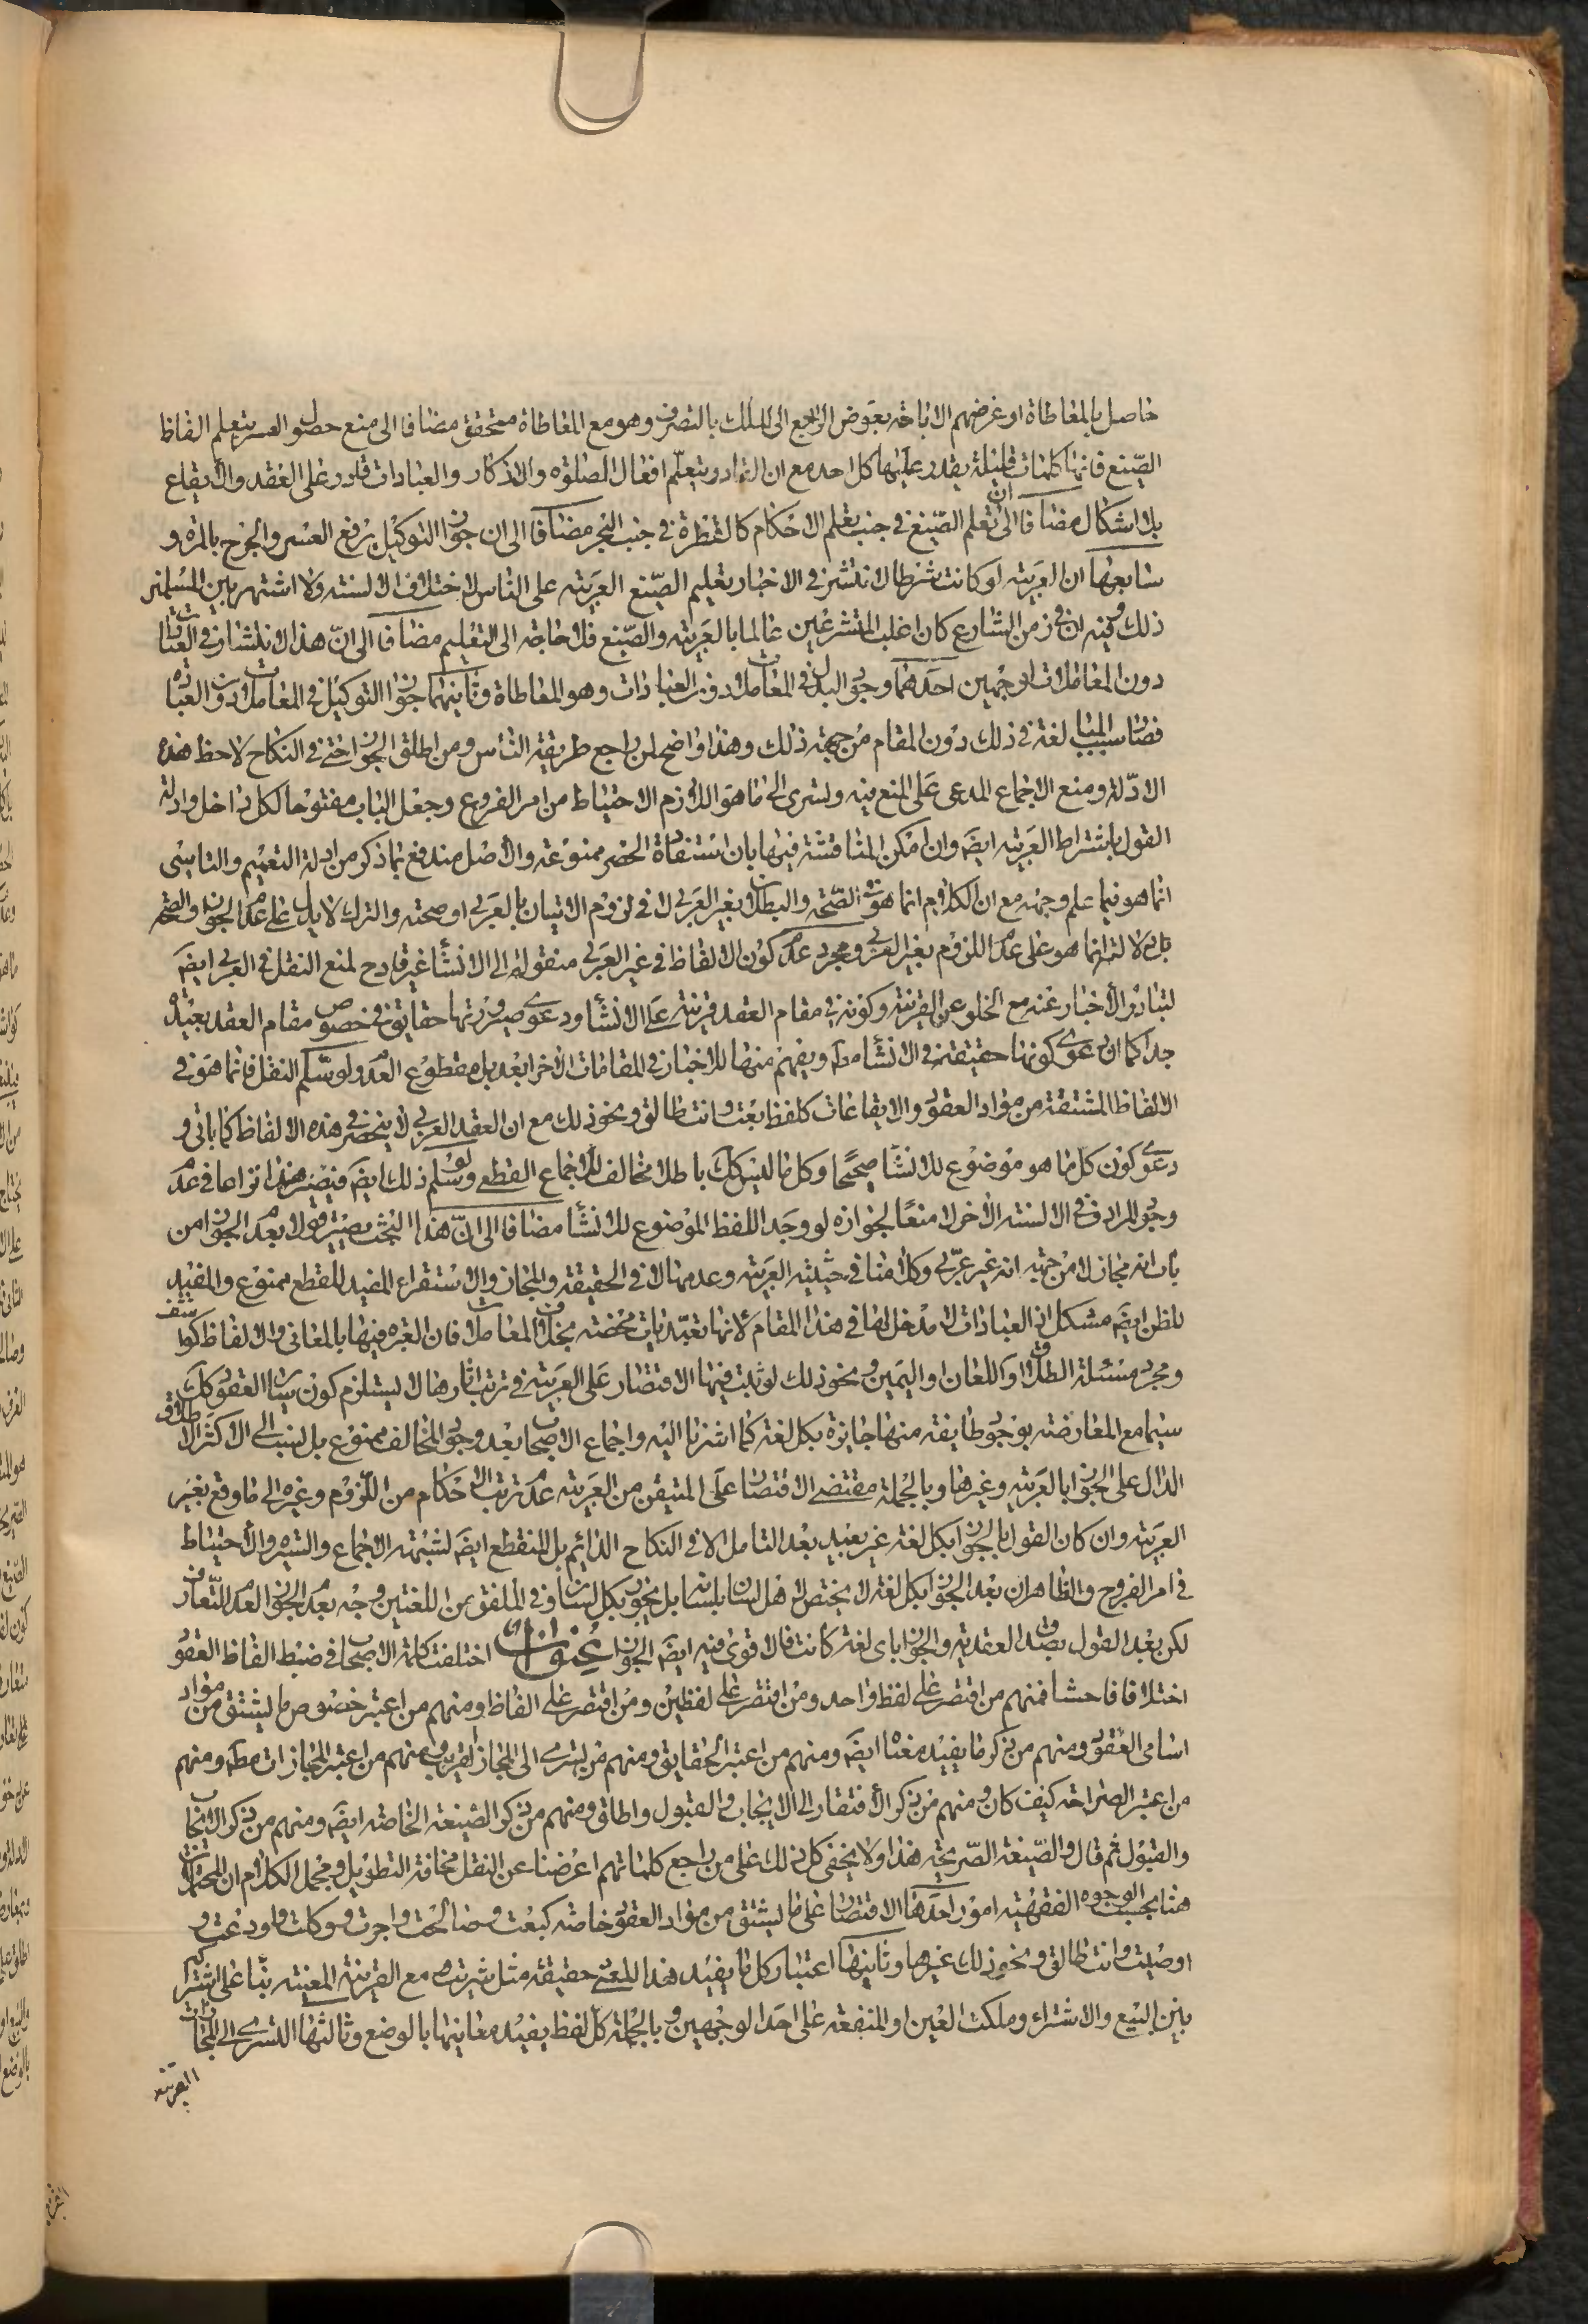 حاصل بالمعاطاة او غرضهم الاباحة بعوض الراجع الى الملك بالتصرف وهو مع المعاطاة متحقق مضافا الى منع حصول العسر بتعلم الفاظ
الصّيغ فانها كلمات قليلة يقدر عليها كل احد مع ان القادر بتعلّم افعال الصلوة والاذكار والعبادات قادر على العقد والايقاع
بلا اشكال مضافا الى ان تعلم الصّيغ في جنب تعلم الاحكام كالقطرة في جنب البحر مضافا الى ان جواز التوكيل يرفع العسر والحرج بالمرة و
سابعها ان العربية لو كانت شرطا لانتشر في الاخبار تعليم الصّيغ العربية على الناس لاختلاف الالسنة ولاشتهر بين المسلمين
ذلك وفيه ان في زمن الشارع كان اغلب المتشرعين عالما بالعربية والصّيغ فلا حاجة الى التعليم مضافا الى انّ هذا الانتشار في العبادات
دون المعاملات لوجهين احدهما وجود البدل في المعاملات دون العبادات وهو المعاطاة وثانيهما جواز التوكيل في المعاملات دون العبادة
فصار سبب المبالغة في ذلك دون المقام من جهة ذلك وهذا واضح لمن راجع طريقة الناس ومن اطلق الجواز حتى في النكاح لاحظ هذه
الادّلة ومنع الاجماع المدعى على المنع فيه وتسرى الى ما هو اللازم الاحتياط من امر الفروج وجعل الباب مفتوحا لكل داخل وادلة
القول باشتراط العربية ايضَ وان امكن المناقشة فيها بان استفادة الحصر ممنوعة والاصل مندفع بما ذكر من ادلة التعميم والتاسى
انما هو فيما علم وجهه مع ان الكلام انما هو في الصّحة والبطلان بغير العربى لا في لزوم الاتيان بالعربى او صحته والترك لا يدل على عدم الجواز والصحة
بل دلالته انما هو على عدم اللزوم بغير العربى ومجرد عدم كون الالفاظ في غير العربى منقولة الى الانشأ غير قادح لمنع النقل في العربى ايضَ
لتبادر الأخبار عنه مع الخلو عن القرينة وكونه في مقام العقد قرينة على الانشأ ودعوى صيرورتها حقايق في خصوص مقام العقد بعيدة
جدا كما ان دعوى كونها حقيقة في الانشأ مطَ ويفهم منها الاخبار في المقامات الأخر ابعد بل مقطوع العدم ولو سلّم النقل فانما هو في
الالفاظ المشتقة من مواد العقود والايقاعات كلفظ بعت وانت طالق ونحو ذلك مع ان العقد العربى لا ينحصر في هذه الالفاظ كما ياتى و
دعوى كون كل ما هو موضوع للانشأ صحيحًا وكل ما ليس ككَ باطلا مخالف للاجماع القطعى ولو سلم ذلك ايضَ فيصير هذا نزاعا في عدم
وجود المرادف في الالسنة الاخر لا منعًا لجوازه لو وجد اللفظ الموضوع للانشأ مضافا الى انّ هذا البحث يصير في بعد الجواز من
باب انه مجاز لا من جهة انه غير عربّى وكلامنا في حيثية العربية وعدمها لا في الحقيقة والمجاز والاستقراء المفيد للقطع ممنوع والمفيد
للظن ايضَ مشكل اذ العبادات لا مدخل لها في هذا المقام لانها تعبّديات محضة بخلاف المعاملات فان العبرة فيها بالمعانى والالفاظ كواشف
ومجرد مسئلة الطلاق او اللعان او اليمين ونحو ذلك لو ثبت فيها الاقتصار على العربية في ترتب اثارها لا يستلزم كون سائر العقود كك
سيما مع المعارضة بوجود طايفة منها جايزة بكل لغة كما اشرنا اليه واجماع الاصحاب بعد وجود المخالف ممنوع بل نسب الى الاكثر الاطلاق
الدال على الجواز بالعربية وغيرها وبالجملة مقتضى الاقتصار على المتيقن من العربية عدم ترتب الاحكام من اللّزوم وغيره الى ما وقع بغير
العربية وان كان القول بالجواز بكل لغة غير بعيد بعد التامل الا في النكاح الدائم بل المنقطع ايضَ لشبهة الاجماع والسيرة والاحتياط
في امر الفروج والظاهر ان بعد الجواز بكل لغة لا يختص اهل لسان بلسانه بل يجوز بكل لسان وفي الملفق من اللغتين وجه بعدم الجواز لعدم التّعارف
لكن بعد القول بصدق العقدية والجواز باى لغة كانت فالاقوى فيه ايضَ الجواز عنوان اختلفت كلمة الاصحاب في ضبط الفاظ العقود
اختلافا فاحشا فمنهم من اقتصر على لفظ واحد ومن اقتصر على لفظين ومن اقتصر على الفاظ ومنهم من اعتبر خصوص ما يشتق من مواد
اسامى العقود ومنهم من ذكر ما يفيد معناه ايضَ ومنهم من اعتبر الحقايق ومنهم من تسرى الى المجاز القريب ومنهم من اعتبر المجازات مطَ ومنهم
من اعتبر الصّراحة كيف كان ومنهم من ذكر الافتقار الى الايجاب والقبول واطلق ومنهم من ذكر الصّيغة الخاصة ايضَ ومنهم من ذكر الايجاب
والقبول ثم قال والصّيغة الصّريحة هذا ولا يخفى كل ذلك على من راجع كلماتهم اعرضنا عن النقل مخافة التطويل ومجمل الكلام ان المحتملات
هنا بحسب الوجوه الفقهية امور احدها الاقتصار على ما يشتق من مواد العقود خاصة كبعت وصالحت واجرت ووكلت واودعت و
اوصيت وانت طالق ونحو ذلك غيرها وثانيها اعتبار كل ما يفيد هذا المعنى حقيقة مثل شريت مع القرينة المعينة بناء على اشتراكه
بين البيع والاشتراء وملكت العين او المنفعة على احد الوجهين وبالجملة كل لفظ يفيد معانيها بالوضع وثالثها التسرى الى المجازات
القريبة